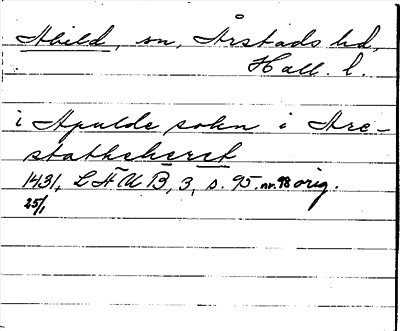 Abild, sn, Årstads hd,
Hall. l.
i Apulde sokn i Are-
statheheret
1431, LÄUB, 3, s. 95. nr. 98 orig.
25/1